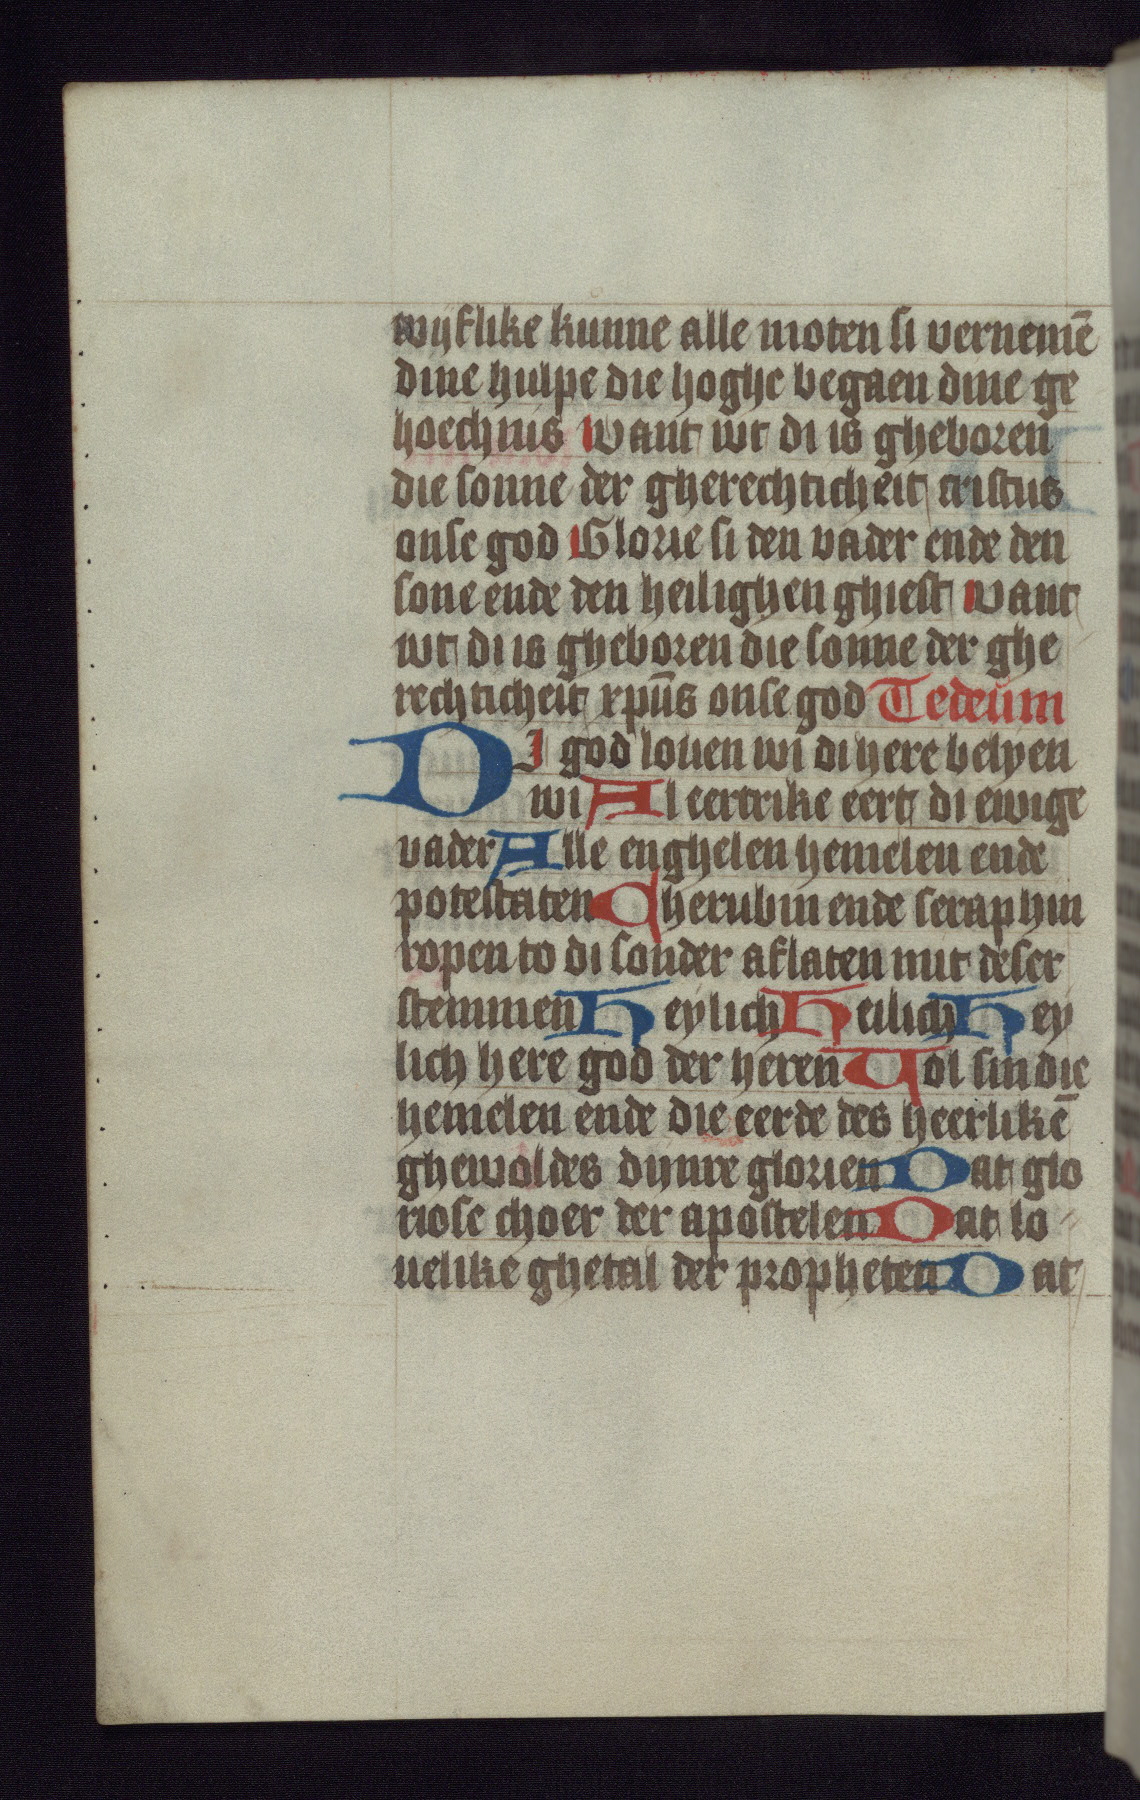 wijflike kunne alle moten si vernemē
dine hulpe die hoghe begaen dine ge
hoechnis Want wt di is gheboren
die sonne der gherechticheit cristus
onse god Glorie si den vader ende den
sone ende den heilighen ghiest Want
wt di is gheboren die sonne der ghe
rechticheit xpūs onse god Tedeum
DI god louen wi di here belyen
wi Al eertrike eert di ewige
vader Alle enghelen hemelen ende
potestaten Cherubin ende seraphin
ropen to di sonder aflaten mit deser
stemmen Heylich Heilich Hey
lich here god der heren Vol sin die
hemelen ende die eerde des heerlikē
ghewoldes dijnre glorien Dat glo
riose choer der apostelen Dat lo
uelike ghetal der propheten Dat